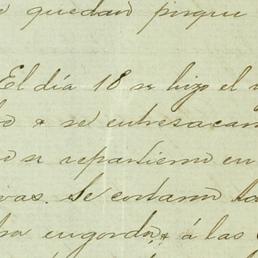 quedan porque
El día 18 se hizo el
se entresacan
se repartieron en
vas. Se cortaron
engorda, & á las